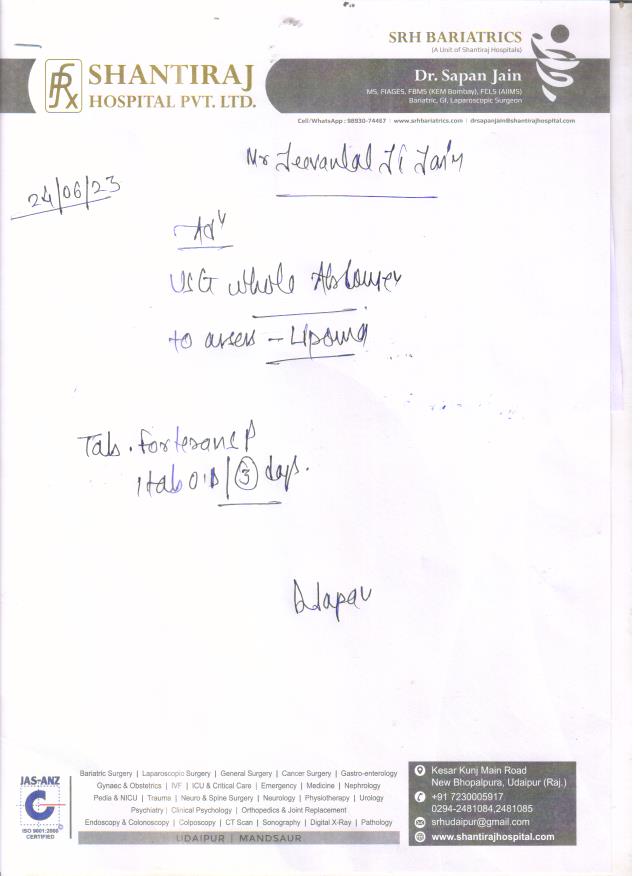 SRH BARIATRICS
(A Unit of Shantiraj Hospitals)
SHANTIRAJ
HOSPITAL PVT. LTD.
Dr. Sapan Jain
MS, FIAGES, FBMS (KEM Bombay), FCLS (AIIMS)
Bariatric, GI, Laparoscopic Surgeon
Cell/WhatsApp : 98930-74467 | www.srhbariatrics.com | drsapanjain@shantirajhospital.com
Mr Jeevanlal Ji Jain
24/06/23
Adv
USG whole Abdomen
to assess - Lipoma
Tab.
1 tab O.D / 3 days.
JAS-ANZ
C
ISO 9001:2008
CERTIFIED
Bariatric Surgery | Laparoscopic Surgery | General Surgery | Cancer Surgery | Gastro-enterology
Gynaec & Obstetrics | IVF | ICU & Critical Care | Emergency | Medicine | Nephrology
Pedia & NICU | Trauma | Neuro & Spine Surgery | Neurology | Physiotherapy | Urology
Psychiatry | Clinical Psychology | Orthopedics & Joint Replacement
Endoscopy & Colonoscopy | Colposcopy | CT Scan | Sonography | Digital X-Ray | Pathology
UDAIPUR | MANDSAUR
Kesar Kunj Main Road
New Bhopalpura, Udaipur (Raj.)
+91 7230005917
0294-2481084,2481085
srhudaipur@gmail.com
www.shantirajhospital.com